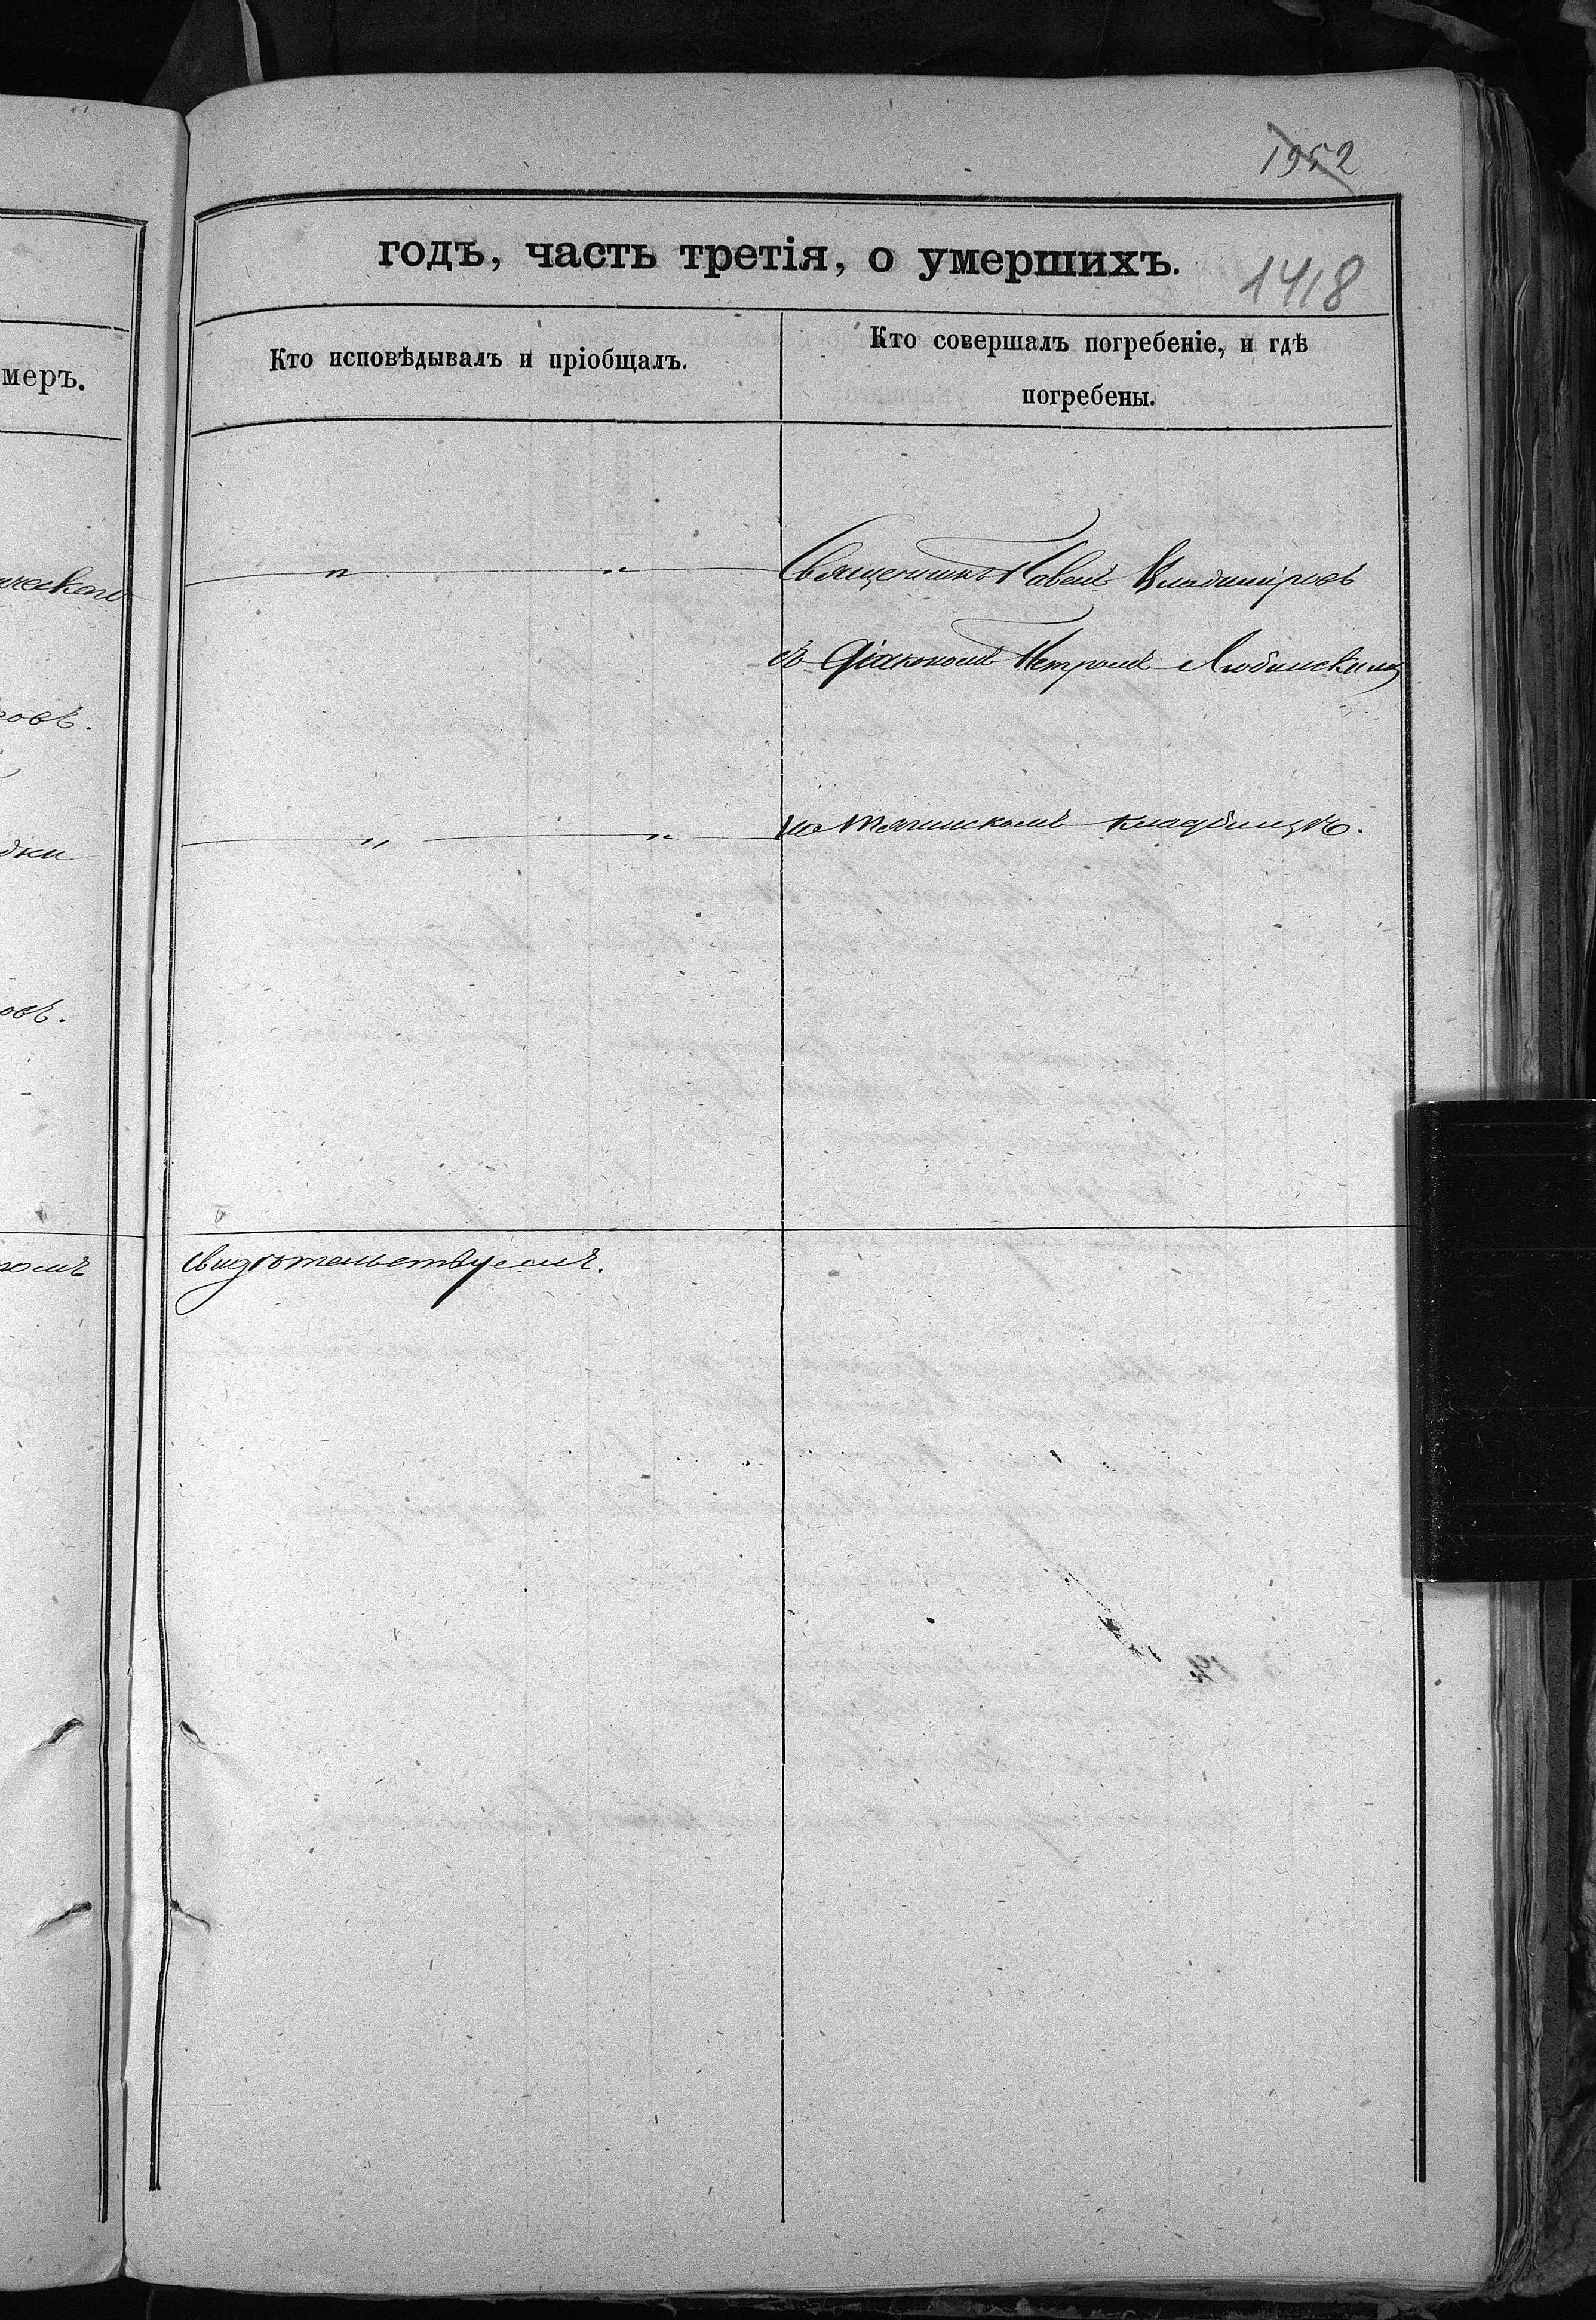 1952
годъ, часть третія, о умершихъ.
1418
меръ.
Кто исповѣдывалъ и пріобщалъ.
Кто совершалъ погребеніе, и гдѣ
погребены.
Священникъ Павелъ Владиміровъ
съ Діакономъ Петромъ Любимскимъ
на кладбищѣ.
свидѣтельствуемъ.